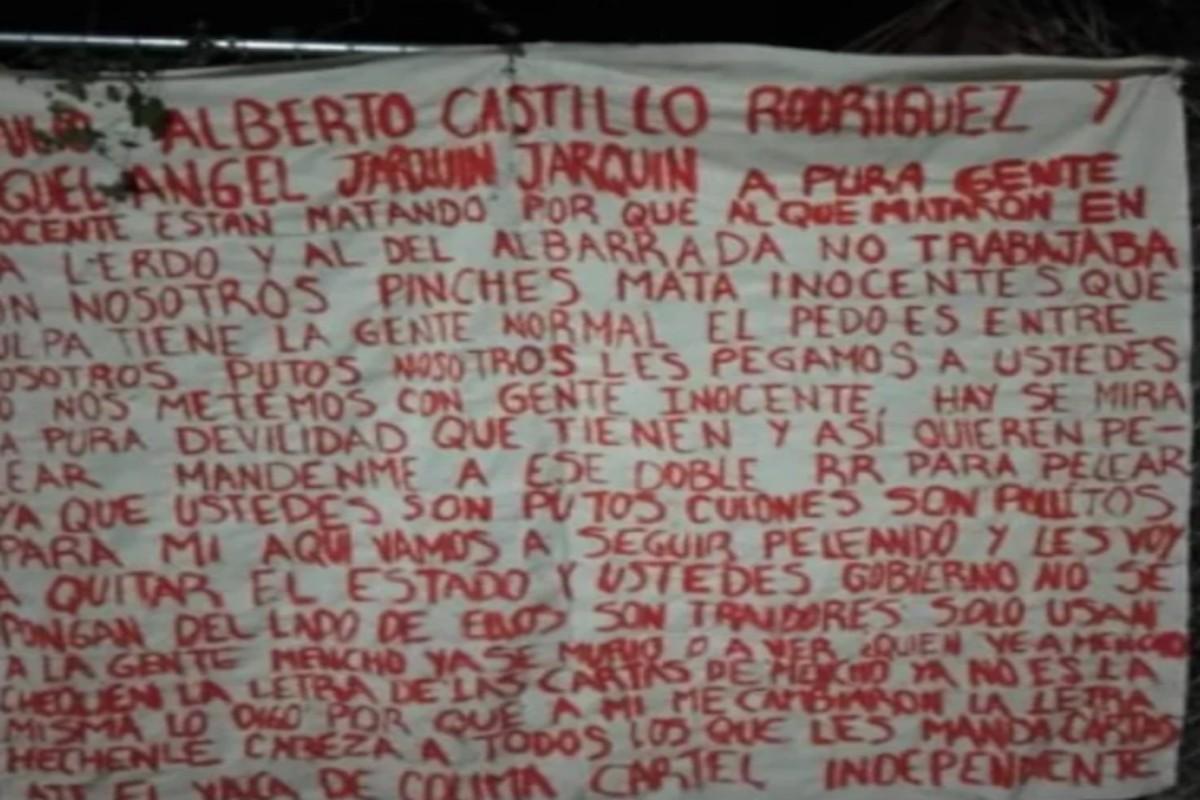 ALBERTO CASTILLO RODRIGUEZ Y
GUEL ANGEL JARQUIN JARQUIN A PURA GENTE
OCENTE ESTAN MATANDO POR QUE AL QUE MATARON EN
A LERDO Y AL DEL ALBARRADA NO TRABAJABA
ON NOSOTROS PINCHES MATA INOCENTES QUE
ULPA TIENE LA GENTE NORMAL EL PEDO ES ENTRE
OSOTROS PUTOS NOSOTROS LES PEGAMOS A USTEDES
O NOS METEMOS CON GENTE INOCENTE, HAY SE MIRA
A PURA DEVILIDAD QUE TIENEN Y ASÍ QUIEREN PE-
LEAR MANDENME A ESE DOBLE RR PARA PELEAR
YA QUE USTEDES SON PUTOS CULONES SON POLLITOS
PARA MI AQUI VAMOS A SEGUIR PELEANDO Y LES VOY
A QUITAR EL ESTADO Y USTEDES GOBIERNO NO SE
PONGAN DEL LADO DE ELLOS SON TRAIDORES SOLO USAN
A LA GENTE MENCHO YA SE MURIO O A VER ¿QUIEN VE A MENCHO
CHEQUEN LA LETRA DE LAS CARTAS DE MENCHO YA NO ES LA
MISMA LO DIGO POR QUE A MI ME CAMBIARON LA LETRA
HECHENLE CABEZA A TODOS LOS QUE LES MANDA CARTAS
ATT EL YACA DE COLIMA CARTEL INDEPENDIENTE